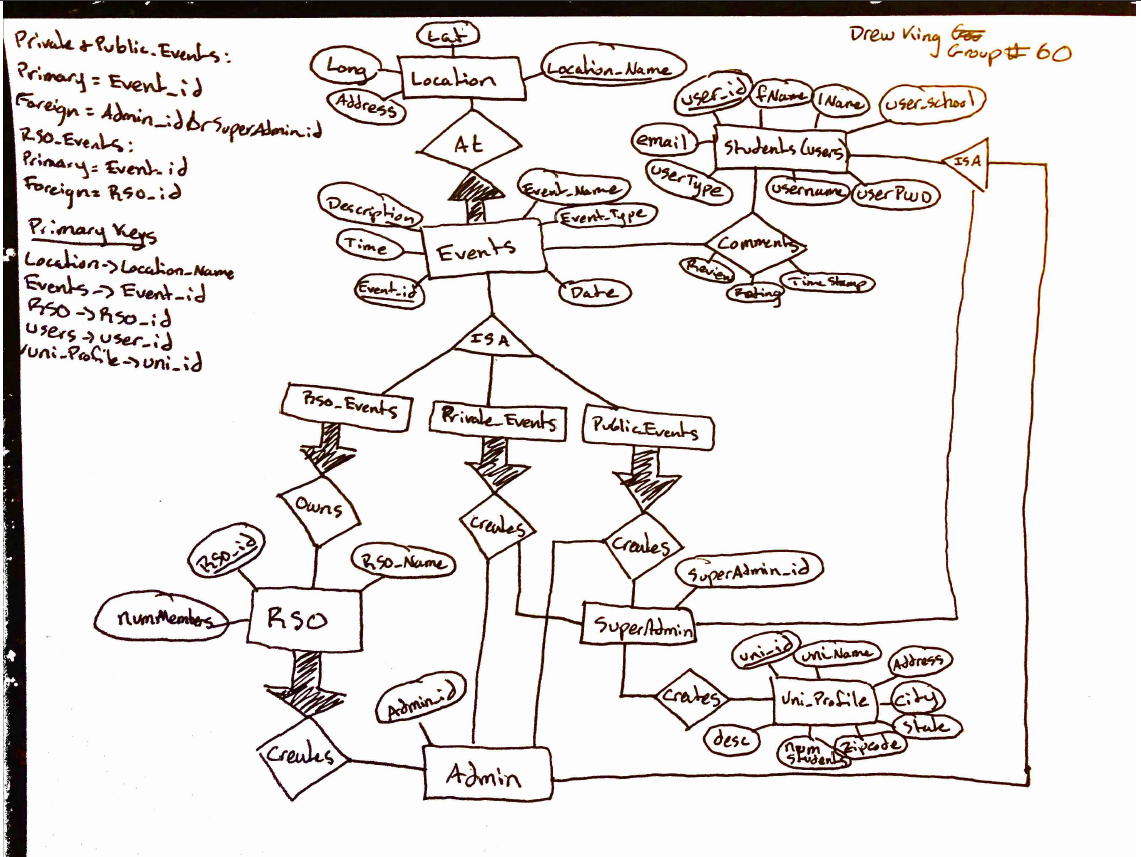 Private & Public_Events:
Primary = Event_id
Foreign = Admin_id/or SuperAdmin_id
RSO_Events:
Primary = Event_id
Foreign = RSO_id
Primary Keys
Location -> Location_Name
Events -> Event_id
RSO -> RSO_id
users -> user_id
uni_Profile -> uni_id
Drew King
Group # 60
Lat
Long
Location
Location_Name
Address
At
user_id
fName
lName
user_school
email
Students (users)
userType
username
userPWD
ISA
Description
Event_Name
Event_Type
Time
Events
Event_id
Date
Comments
Review
Rating
Time Stamp
ISA
RSO_Events
Private_Events
Public_Events
Owns
Creates
Creates
RSO_id
RSO_Name
numMembers
RSO
SuperAdmin_id
SuperAdmin
Creates
uni_id
uniName
Address
Uni_Profile
City
State
Zipcode
num students
desc
Creates
Admin_id
Admin